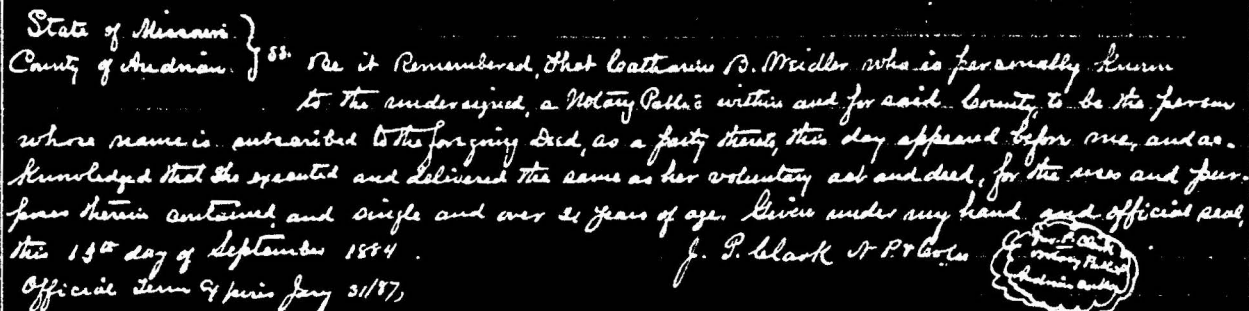 State of Missouri
County of Audrian } ss. Be it Remembered, that Catharine B. Weidler who is personally known
to the undersigned, a Notary Public within and for said County, to be the person
whose name is subscribed to the forgoing Deed, as a party thereto, this day appeared before me, and ac-
knowledged that she executed and delivered the same as her voluntary act and deed, for the uses and pur-
poses therein contained, and single and over 21 years of age. Given under my hand and official seal,
this 13th day of September 1884.
J. P. Clark N. P.
Official Term Expires Jany 31/87,
Jas. P. Clark
Notary Public
Audrian